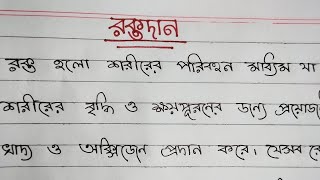 রক্তদান
রক্ত হলো শরীরের পরিবহন মাধ্যম যা
শরীরের বৃদ্ধি ও ক্ষয়পূরনের জন্য
খাদ্য ও অক্সিজেন প্রদান করে। যেসব